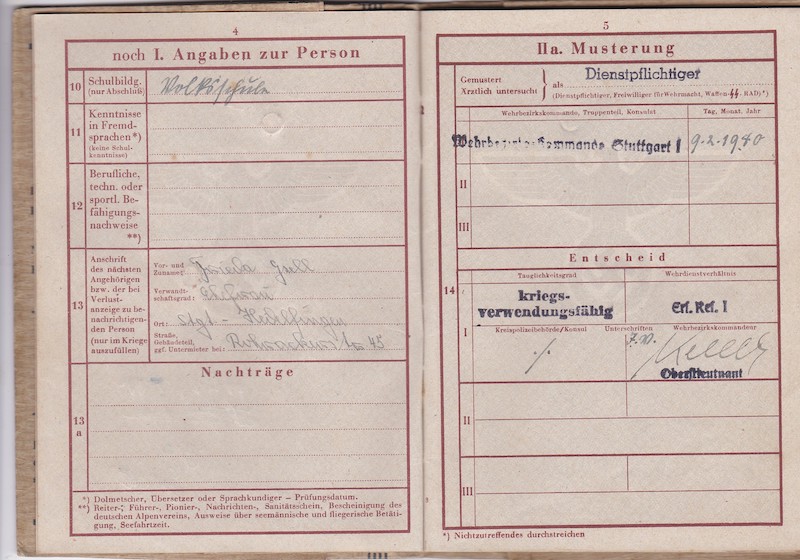 4
noch I. Angaben zur Person
10 Schulbildg.
(nur Abschluß)
Volksschule
11 Kenntnisse
in Fremd-
sprachen*)
(keine Schul-
kenntnisse)
12 Berufliche,
techn. oder
sportl. Be-
fähigungs-
nachweise
**)
13 Anschrift
des nächsten
Angehörigen
bzw. der bei
Verlust-
anzeige zu be-
nachrichtigen-
den Person
(nur im Kriege
auszufüllen)
Vor- und
Zuname:
Frieda
Verwandt-
schaftsgrad:
Ehefrau
Ort: Stgt -
Straße,
Gebäudeteil,
ggf. Untermieter bei:
45
Nachträge
13
a
*) Dolmetscher, Übersetzer oder Sprachkundiger – Prüfungsdatum.
**) Reiter-, Führer-, Pionier-, Nachrichten-, Sanitätsschein, Bescheinigung des
deutschen Alpenvereins, Ausweise über seemännische und fliegerische Betäti-
gung, Seefahrtzeit.
5
IIa. Musterung
Gemustert
Ärztlich untersucht
als Dienstpflichtiger
(Dienstpflichtiger, Freiwilliger für Wehrmacht, Waffen-SS, RAD)*)
Wehrbezirkskommando, Truppenteil, Konsulat
Tag, Monat, Jahr
Wehrbezirks-Kommando Stuttgart I 9.2.1940
II
III
Entscheid
14
Tauglichkeitsgrad Wehrdienstverhältnis
kriegs-
verwendungsfähig
Ers. Res. I
I
Kreispolizeibehörde/Konsul Unterschriften Wehrbezirkskommandeur
Oberstleutnant
II
III
*) Nichtzutreffendes durchstreichen